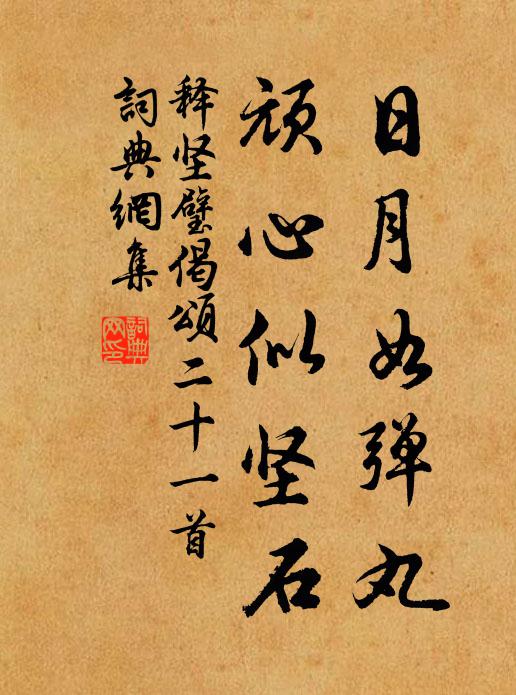 日月如弹丸
顽心似坚石
释坚璧偈颂二十一首
詞典網集
詞典
网印